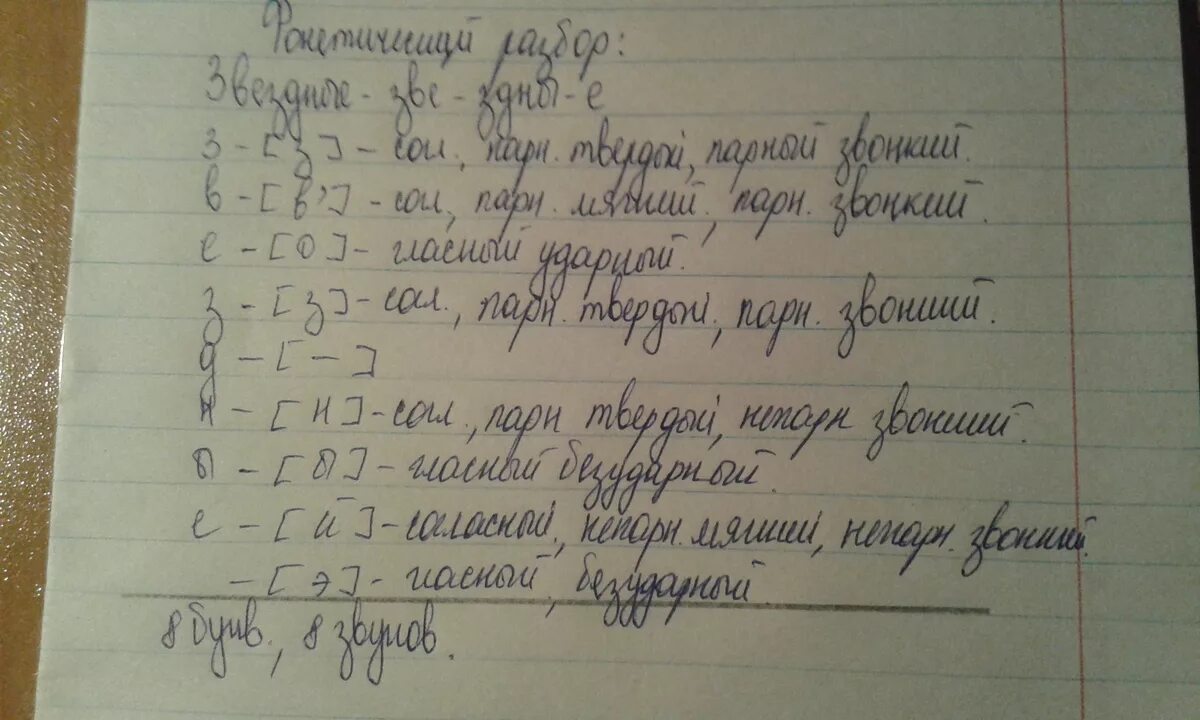 Фонетический разбор:
Звездные - зве - здны - е
з - [з] - сог., парн. твердый, парный звонкий.
в - [в'] - сог, парн. мягкий, парн. звонкий.
е - [о] - гласный ударный.
з - [з] - сог., парн. твердый, парн. звонкий.
д - [-]
н - [н] - согл., парн твердый, непарн звонкий.
ы - [ы] - гласный безударный.
е - [й] - согласный, непарн. мягкий, непарн. звонкий.
- [э] - гласный, безударный.
8 букв, 8 звуков.